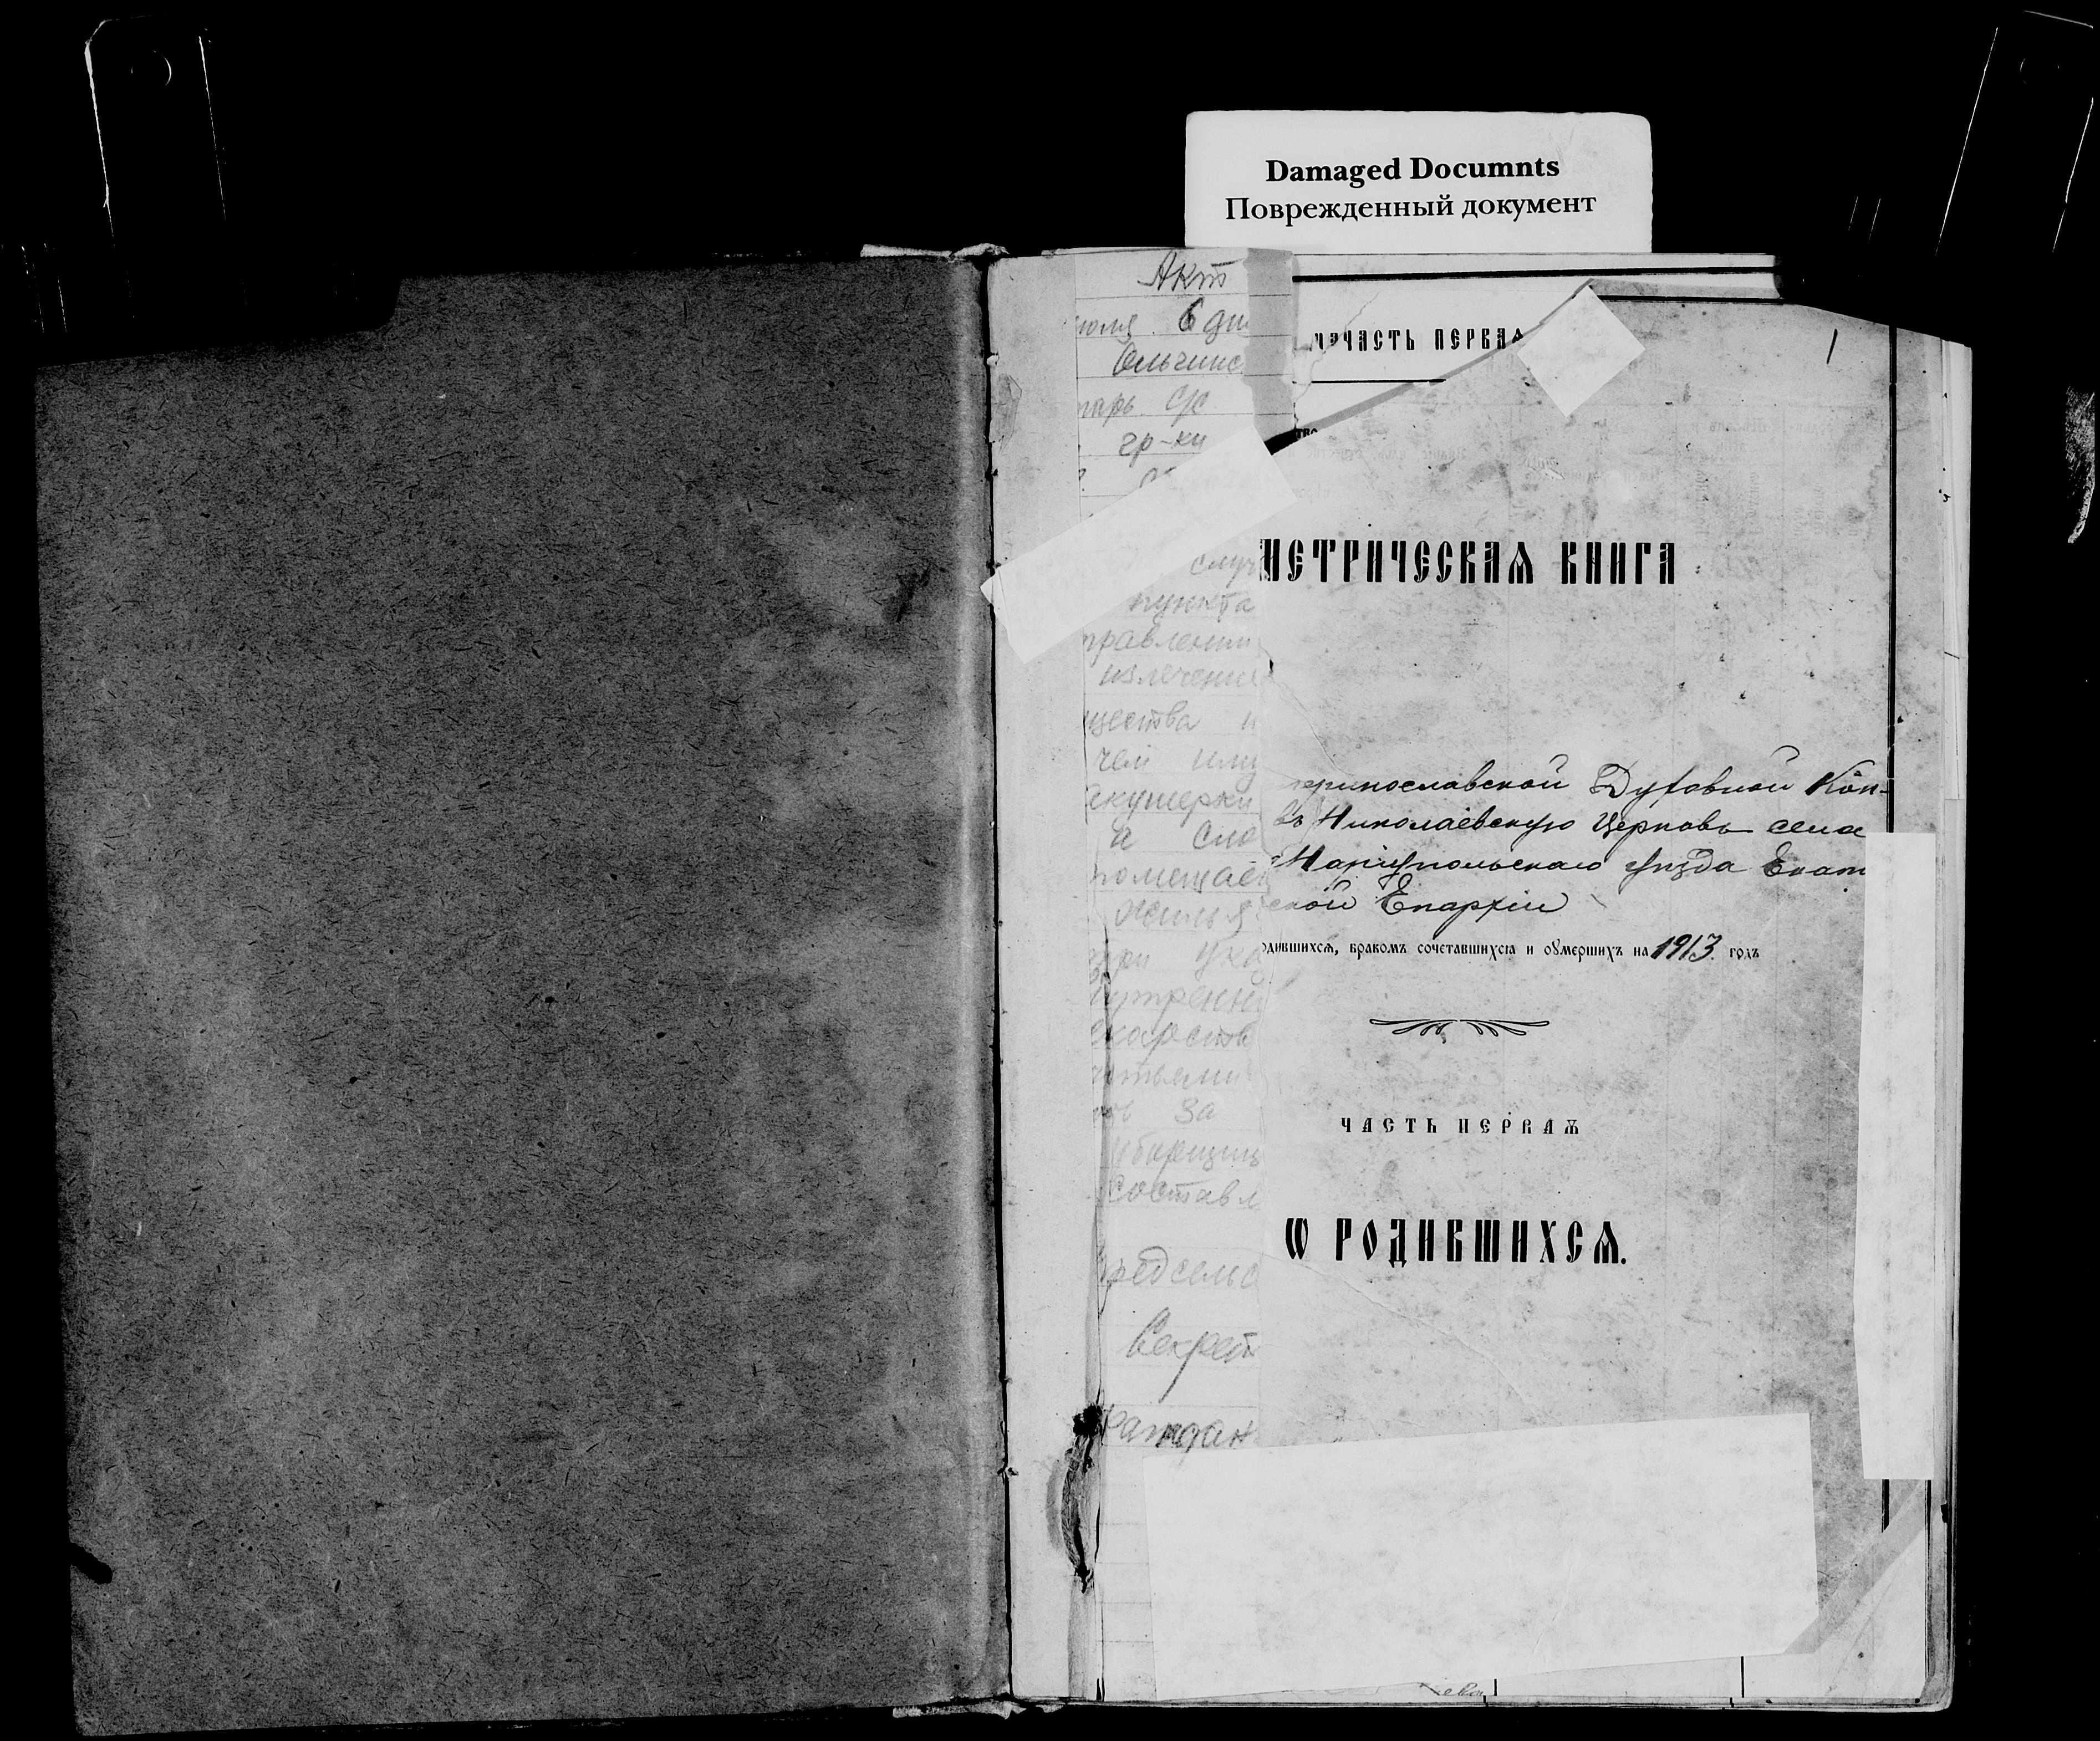 Damaged Documnts
Повреждённый документ
Акт
6 дн
Ольгинс
гр-ки
случ
пункта
правлении
излечени
щества и
чем иму
акушерки
и сно
помещаем
жилья
при ука
внутренн
за
уборщиц
составл
редсельс
Секрет
раждан
ЧАСТЬ ПЕРВАѦ
1
МЕТРИЧЕСКАѦ КНИГА
еринославской Духовной Кон-
въ Николаевскую Церковь села
Маріупольскаго уѣзда Екат
ской Епархіи
одившихсѧ, бракомъ сочетавшихсѧ и оумершихъ на 1913 годъ
ЧАСТЬ ПЕРВАѦ
Ѡ РОДИВШИХСѦ.